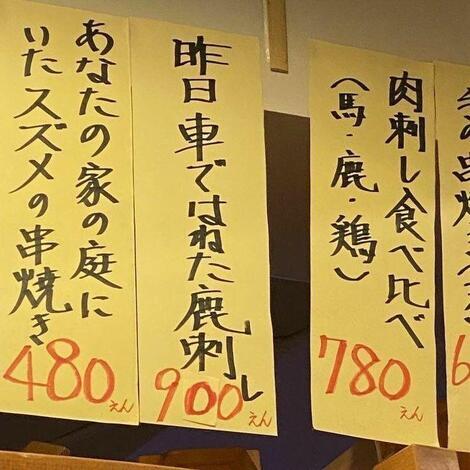 肉刺し食べ比べ
(馬・鹿・鶏)
780えん
昨日車ではねた鹿刺し
900えん
あなたの家の庭に
いたスズメの串焼き
480えん